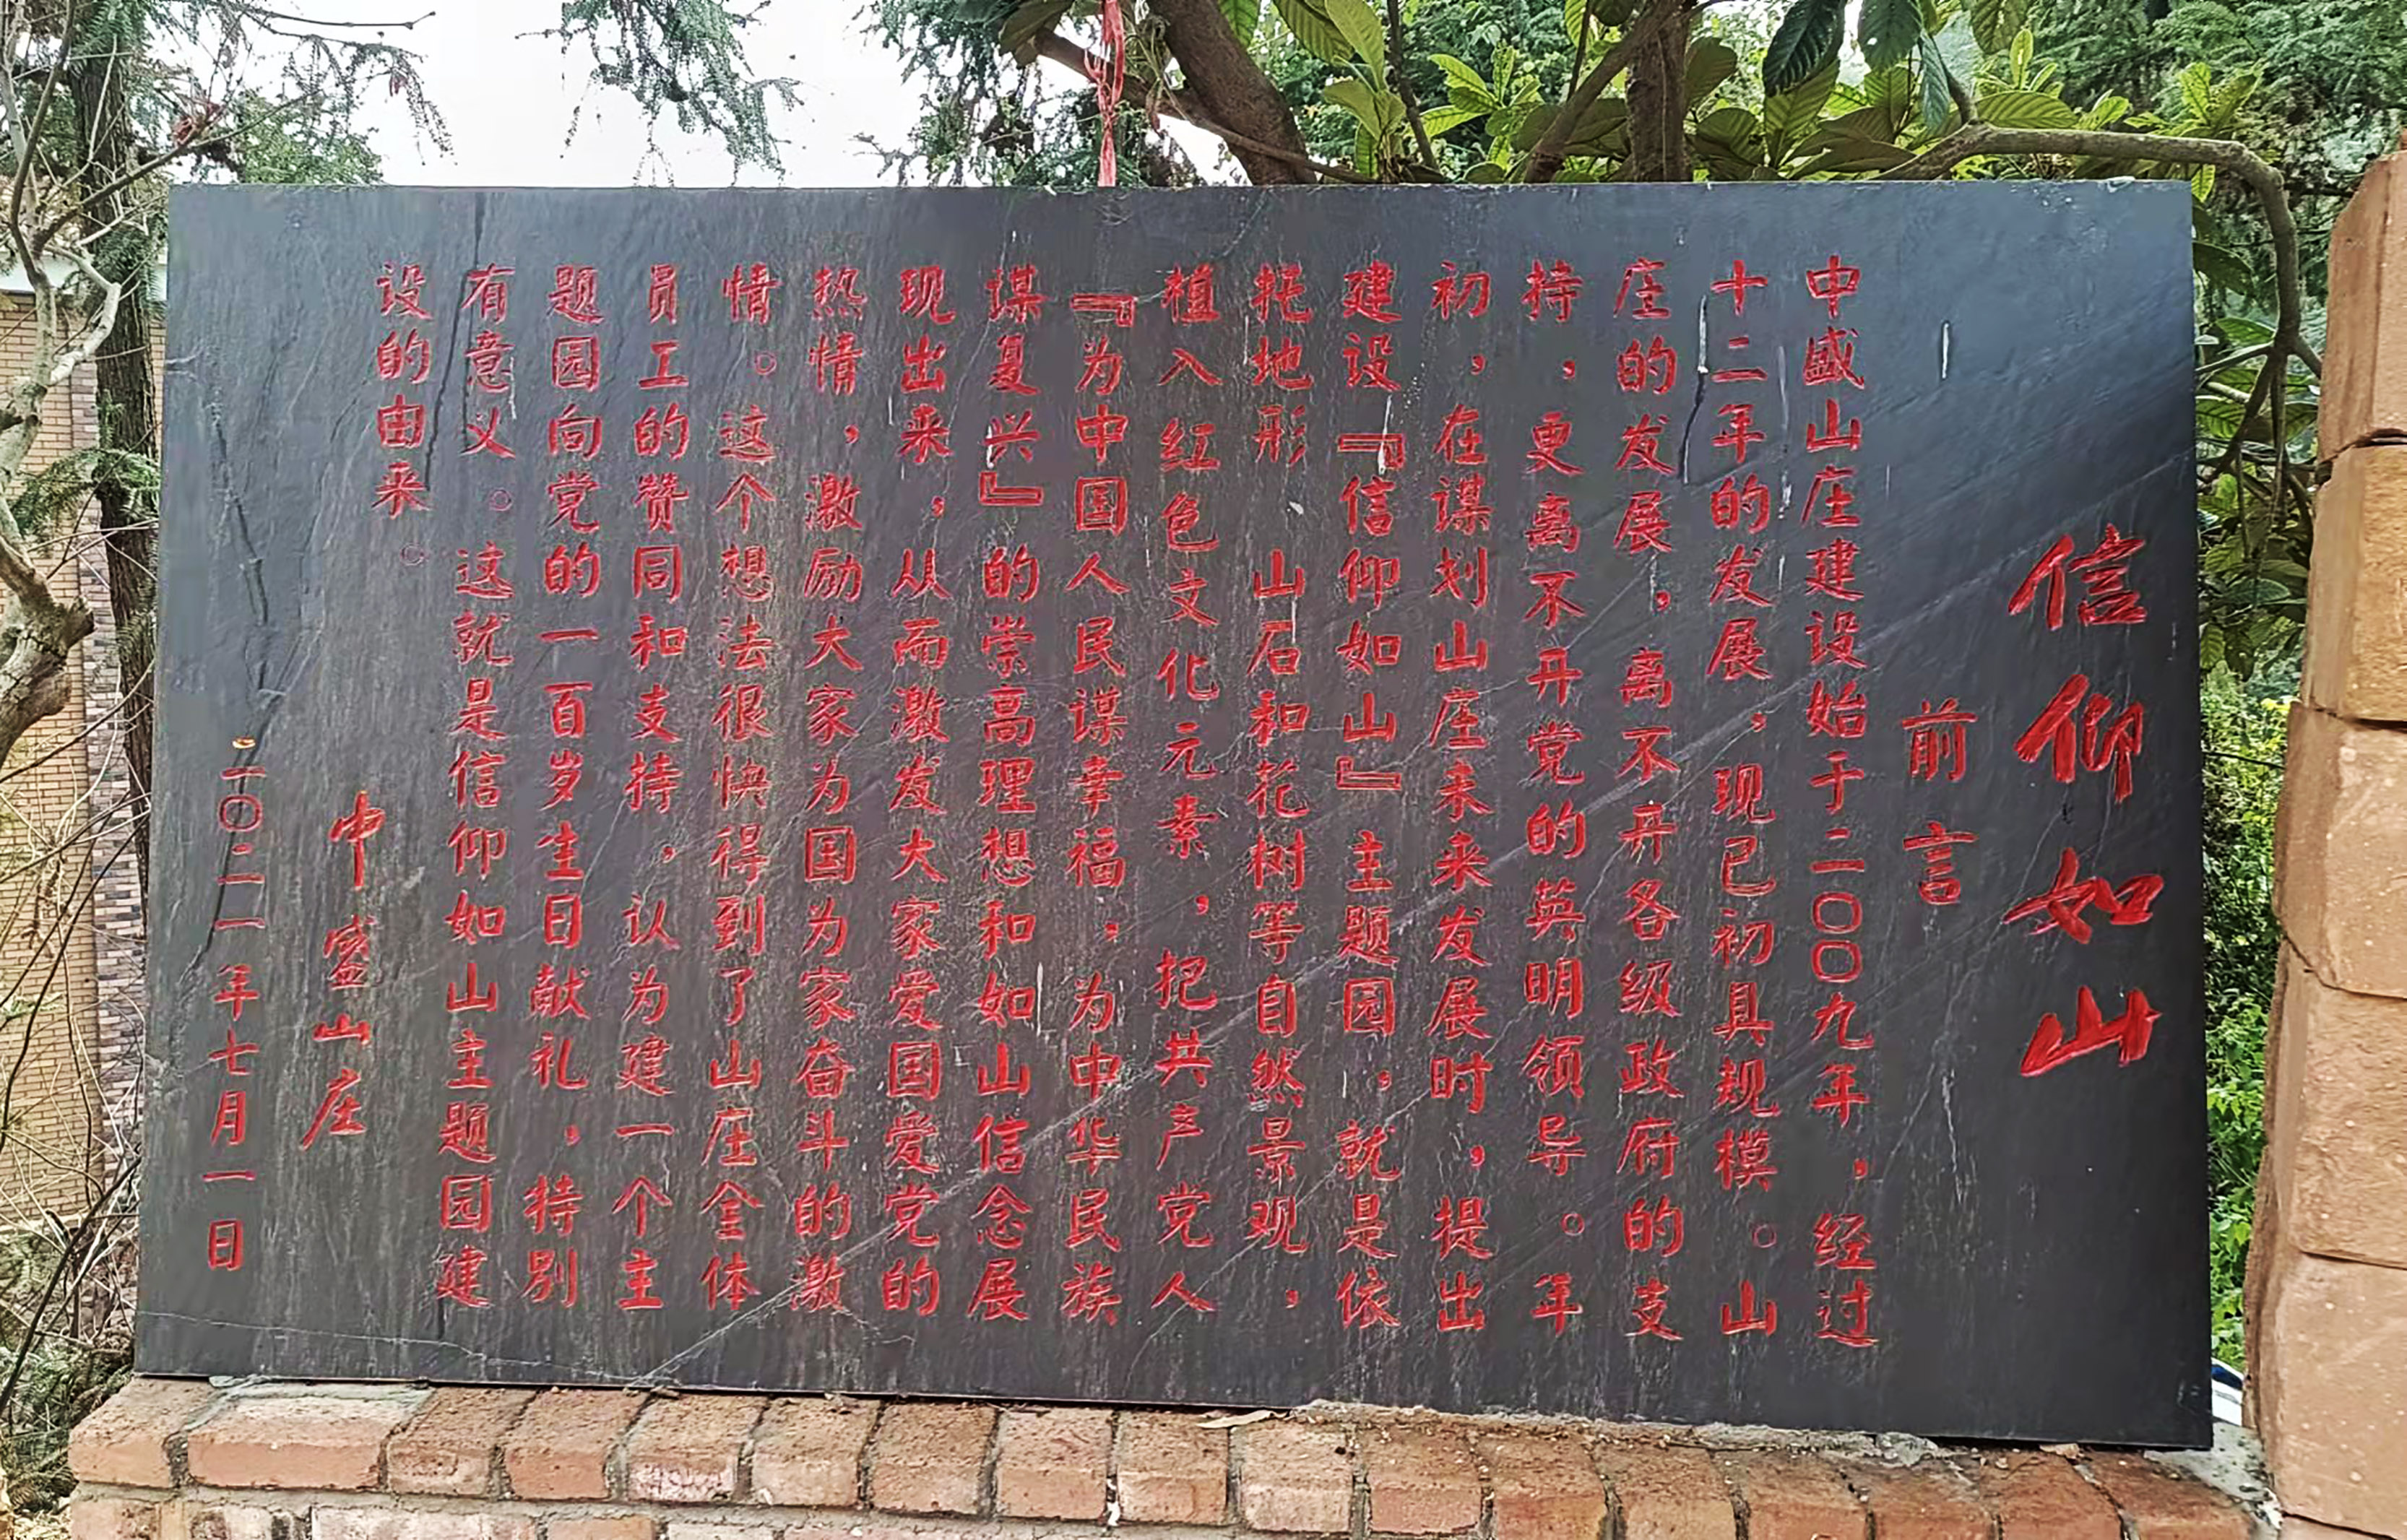 信仰如山
前言
中盛山庄建设始于二〇〇九年，经过
十二年的发展，现已初具规模。山
庄的发展，离不开各级政府的支
持，更离不开党的英明领导。年
初，在谋划山庄未来发展时，提出
建设『信仰如山』主题园，就是依
托地形、山石和花树等自然景观，
植入红色文化元素，把共产党人
『为中国人民谋幸福，为中华民族
谋复兴』的崇高理想和如山信念展
现出来，从而激发大家爱国爱党的
热情，激励大家为国为家奋斗的激
情。这个想法很快得到了山庄全体
员工的赞同和支持，认为建一个主
题园向党的一百岁生日献礼，特别
有意义。这就是信仰如山主题园建
设的由来。
中盛山庄
二〇二一年七月一日